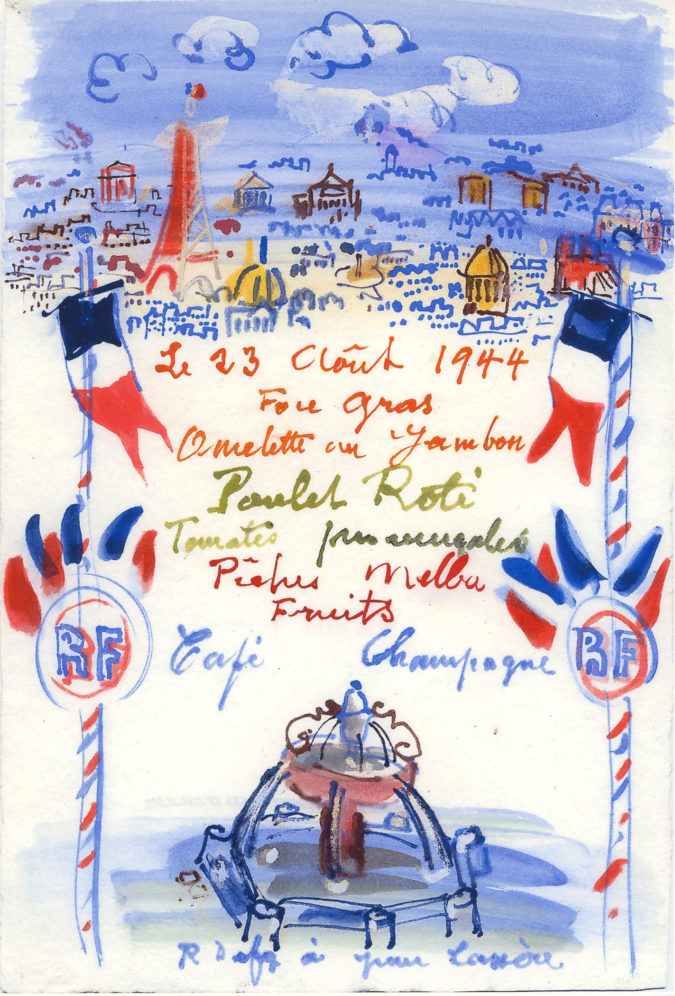 Le 23 Août 1944
Foie gras
Omelette au Jambon
Poulet Roti
Tomates provençales
Pêches Melba
Fruits
RF Café Champagne RF
R Dufy à